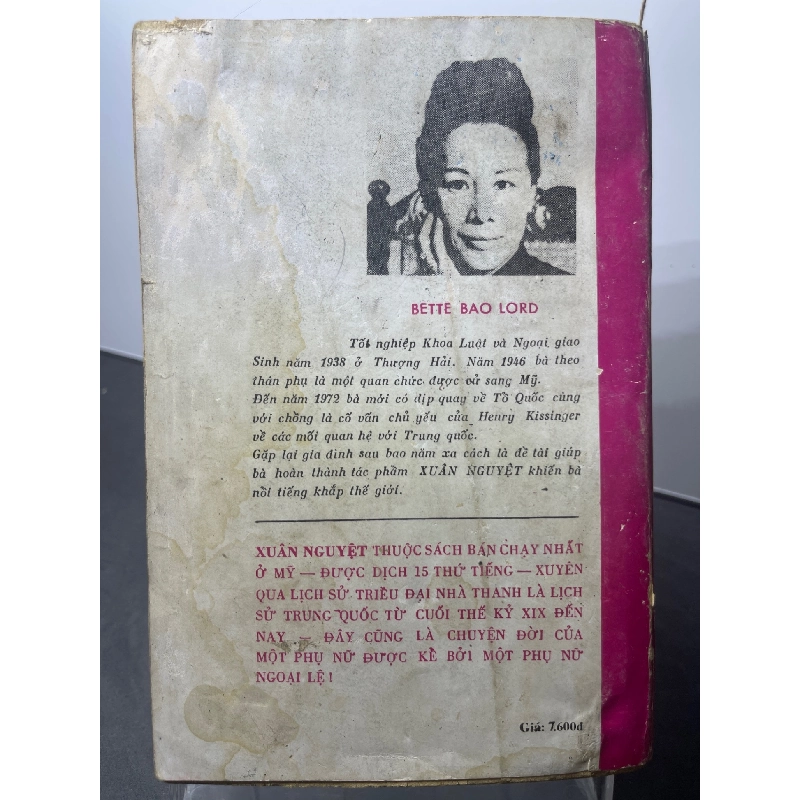 BETTE BAO LORD
Tốt nghiệp Khoa Luật và Ngoại giao
Sinh năm 1938 ở Thượng Hải. Năm 1946 bà theo
thân phụ là một quan chức được cử sang Mỹ.
Đến năm 1972 bà mới có dịp quay về Tổ Quốc cùng
với chồng là cố vấn chủ yếu của Henry Kissinger
về các mối quan hệ với Trung quốc.
Gặp lại gia đình sau bao năm xa cách là đề tài giúp
bà hoàn thành tác phẩm XUÂN NGUYỆT khiến bà
nồi tiếng khắp thế giới.
XUÂN NGUYỆT THUỘC SÁCH BÁN CHẠY NHẤT
Ở MỸ — ĐƯỢC DỊCH 15 THỨ TIẾNG — XUYÊN
QUA LỊCH SỬ TRIỀU ĐẠI NHÀ THANH LÀ LỊCH
SỬ TRUNG QUỐC TỪ CUỐI THẾ KỶ XIX ĐẾN
NAY — ĐÂY CŨNG LÀ CHUYỆN ĐỜI CỦA
MỘT PHỤ NỮ ĐƯỢC KỂ BỞI MỘT PHỤ NỮ
NGOẠI LỆ !
Giá: 7.600đ